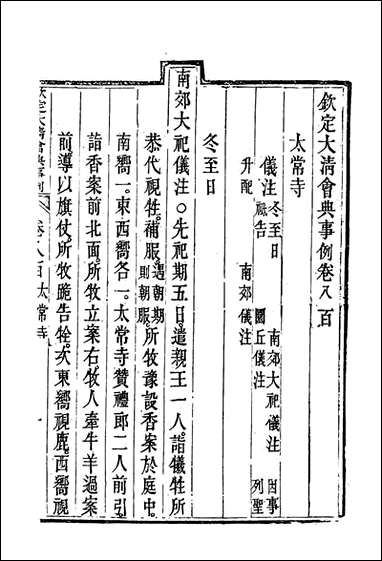 欽定大清會典事例卷八百
太常寺
儀注 冬至日 南郊大祀儀注 因事
祗告 圜丘儀注 列聖
升配 南郊儀注
冬至日
南郊大祀儀注○先祀期五日。遣親王一人。詣犧牲所
恭代視牲。補服。遇朝期則朝服。所牧豫設香案於庭中。
南嚮一。東西嚮各一。太常寺贊禮郎二人前引。
詣香案前北面。所牧立案右。牧人牽牛羊過案
前。導以旗仗。所牧跪告牲。次東嚮視鹿。西嚮視
欽定大清會典事例 卷八百 太常寺 一